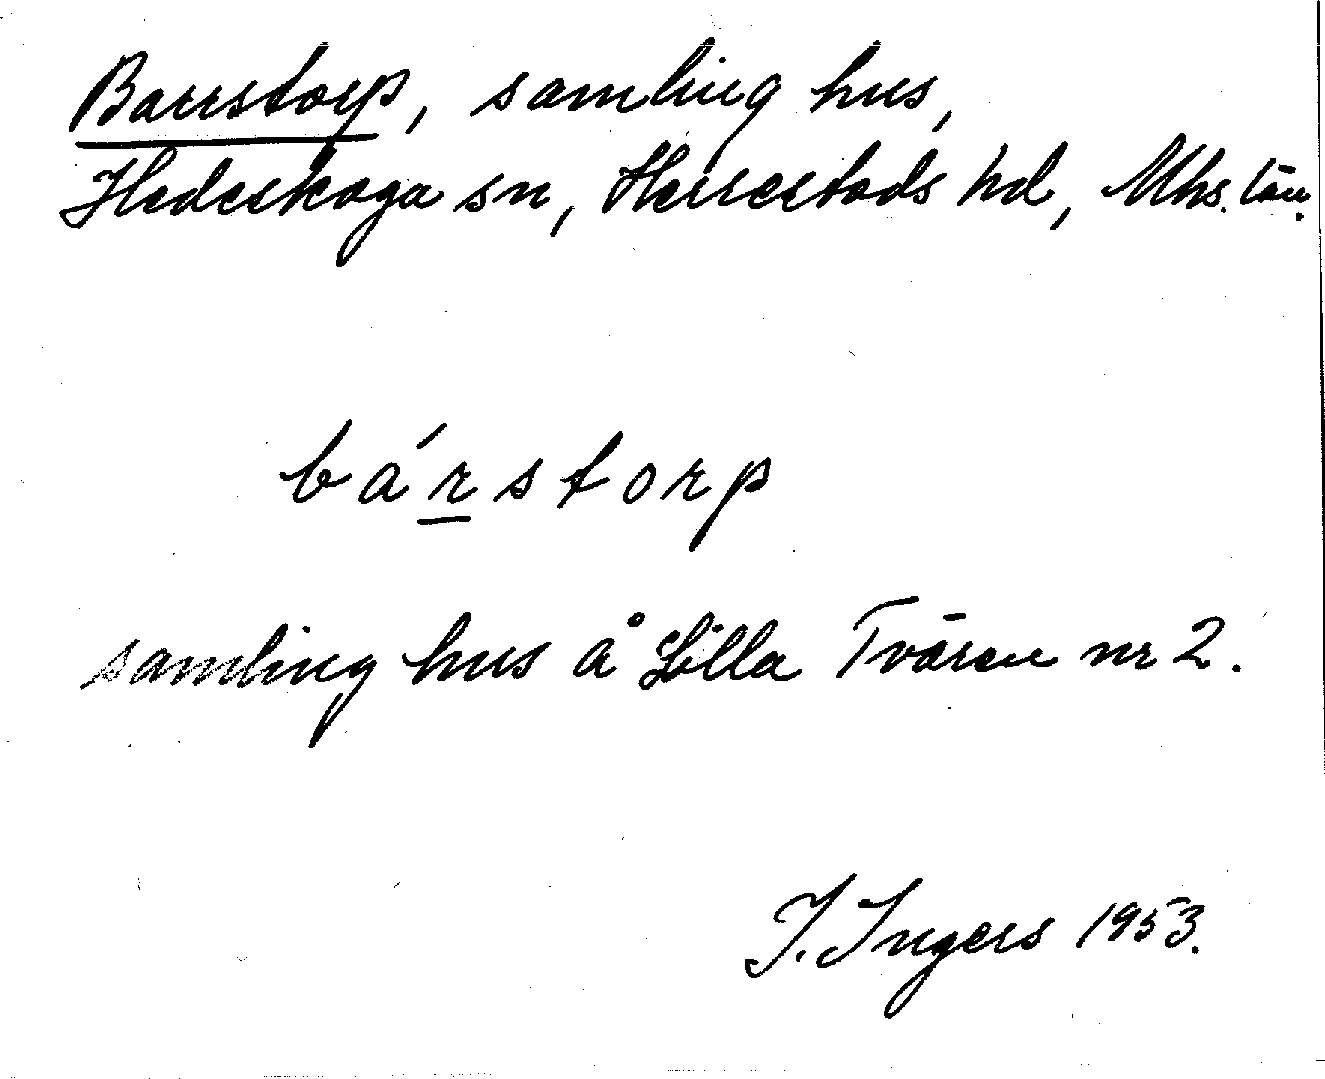 Barrstorp, samling hus,
Hedeskoga sn, Herrestads hd, Mhs. län.
bárstorp
samling hus å Lilla Tvären nr 2.
I. Ingers 1953.